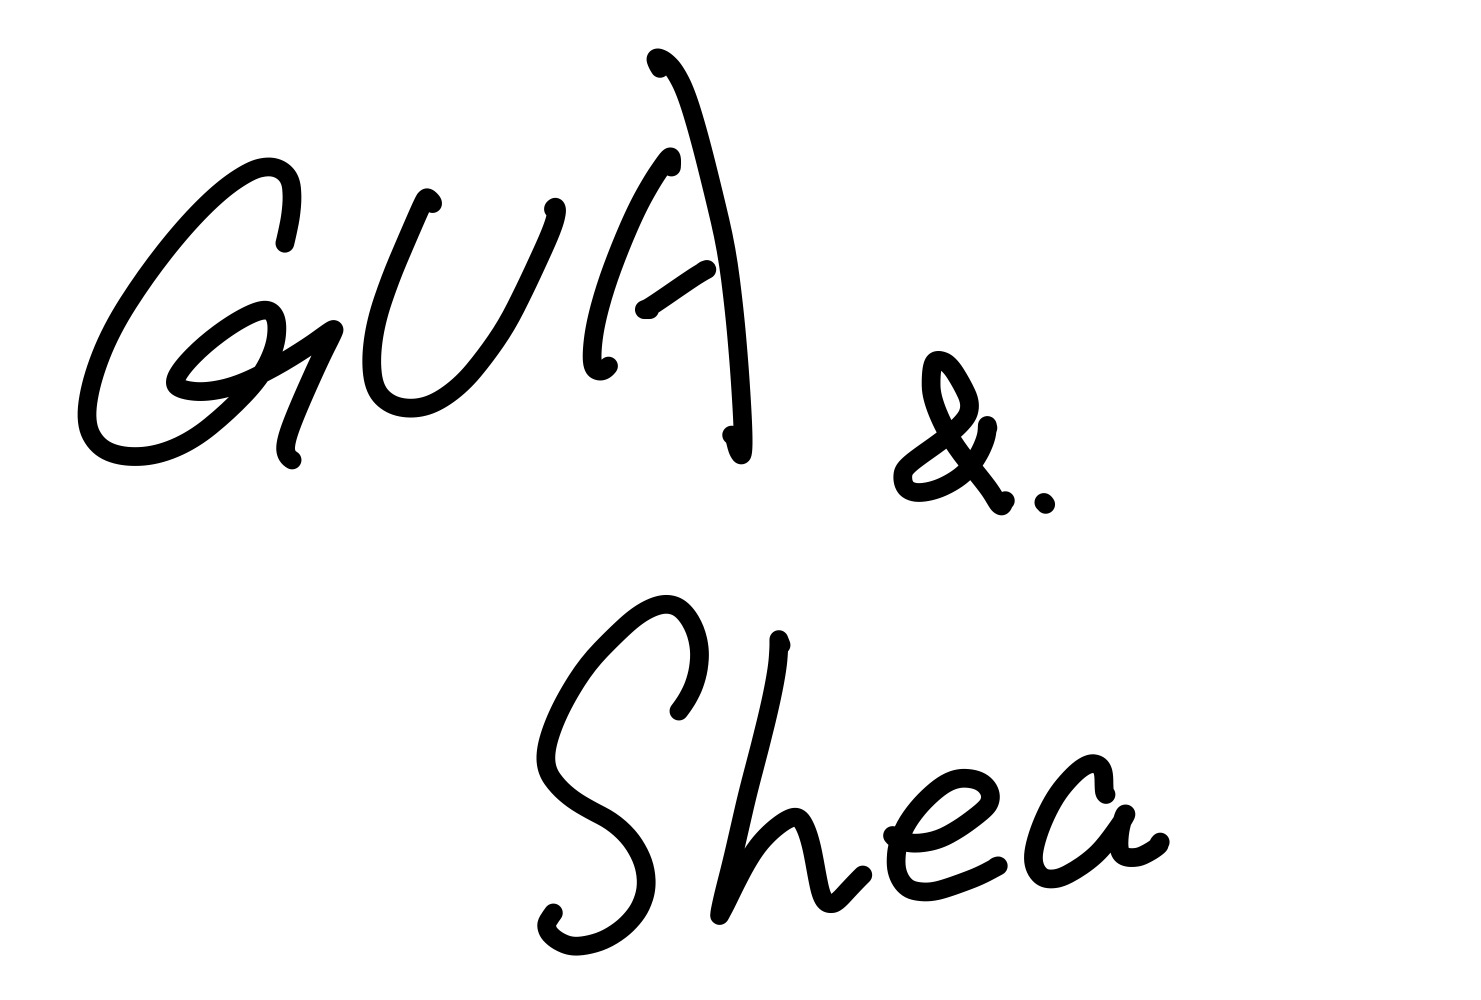 GUA &.
Shea